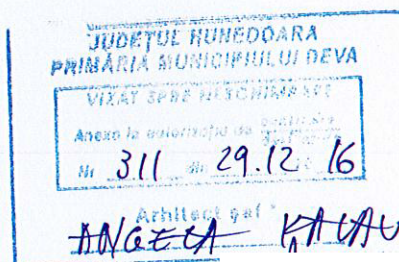 JUDEŢUL HUNEDOARA
PRIMĂRIA MUNICIPIULUI DEVA
VIZAT SPRE NESCHIMBARE
Anexă la autorizaţia de
Nr 311 din 29.12 16
Arhitect şef
ANGELA